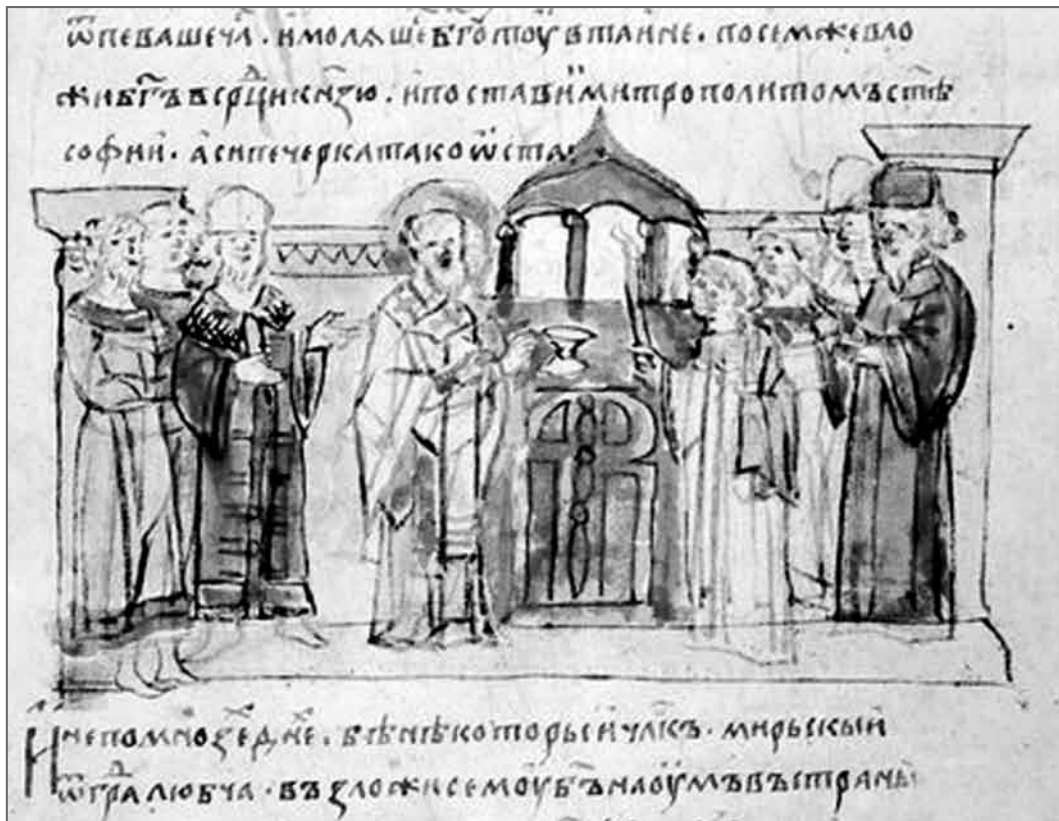 ѿпеваше ча҃. и молѧше бг҃оу тоу втаине. посемже вло
жи бг҃ъ в срⷣци кн҃зю. и постави митрополитомъ ст҃ѣ
софии. а си печерка тако ѿста.
И не по мнозеⷯ дн҃е. бѣ нѣкоторыи чл҃къ. мирьскыи
ѿ граⷣ любча. възложи семоу б҃ъ на оумъ въ страны